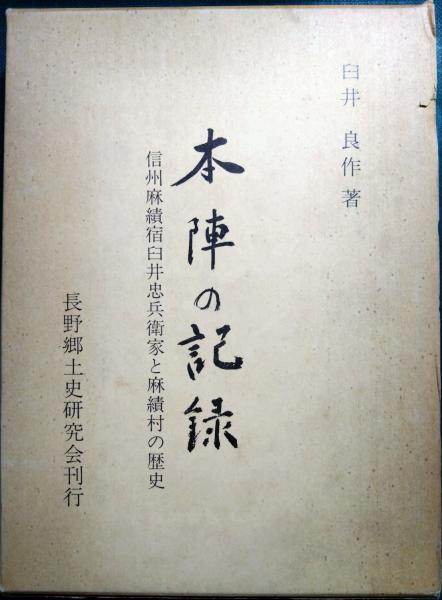 臼井 良作 著
本陣の記録
信州麻績宿臼井忠兵衛家と麻績村の歴史
長野郷土史研究会刊行